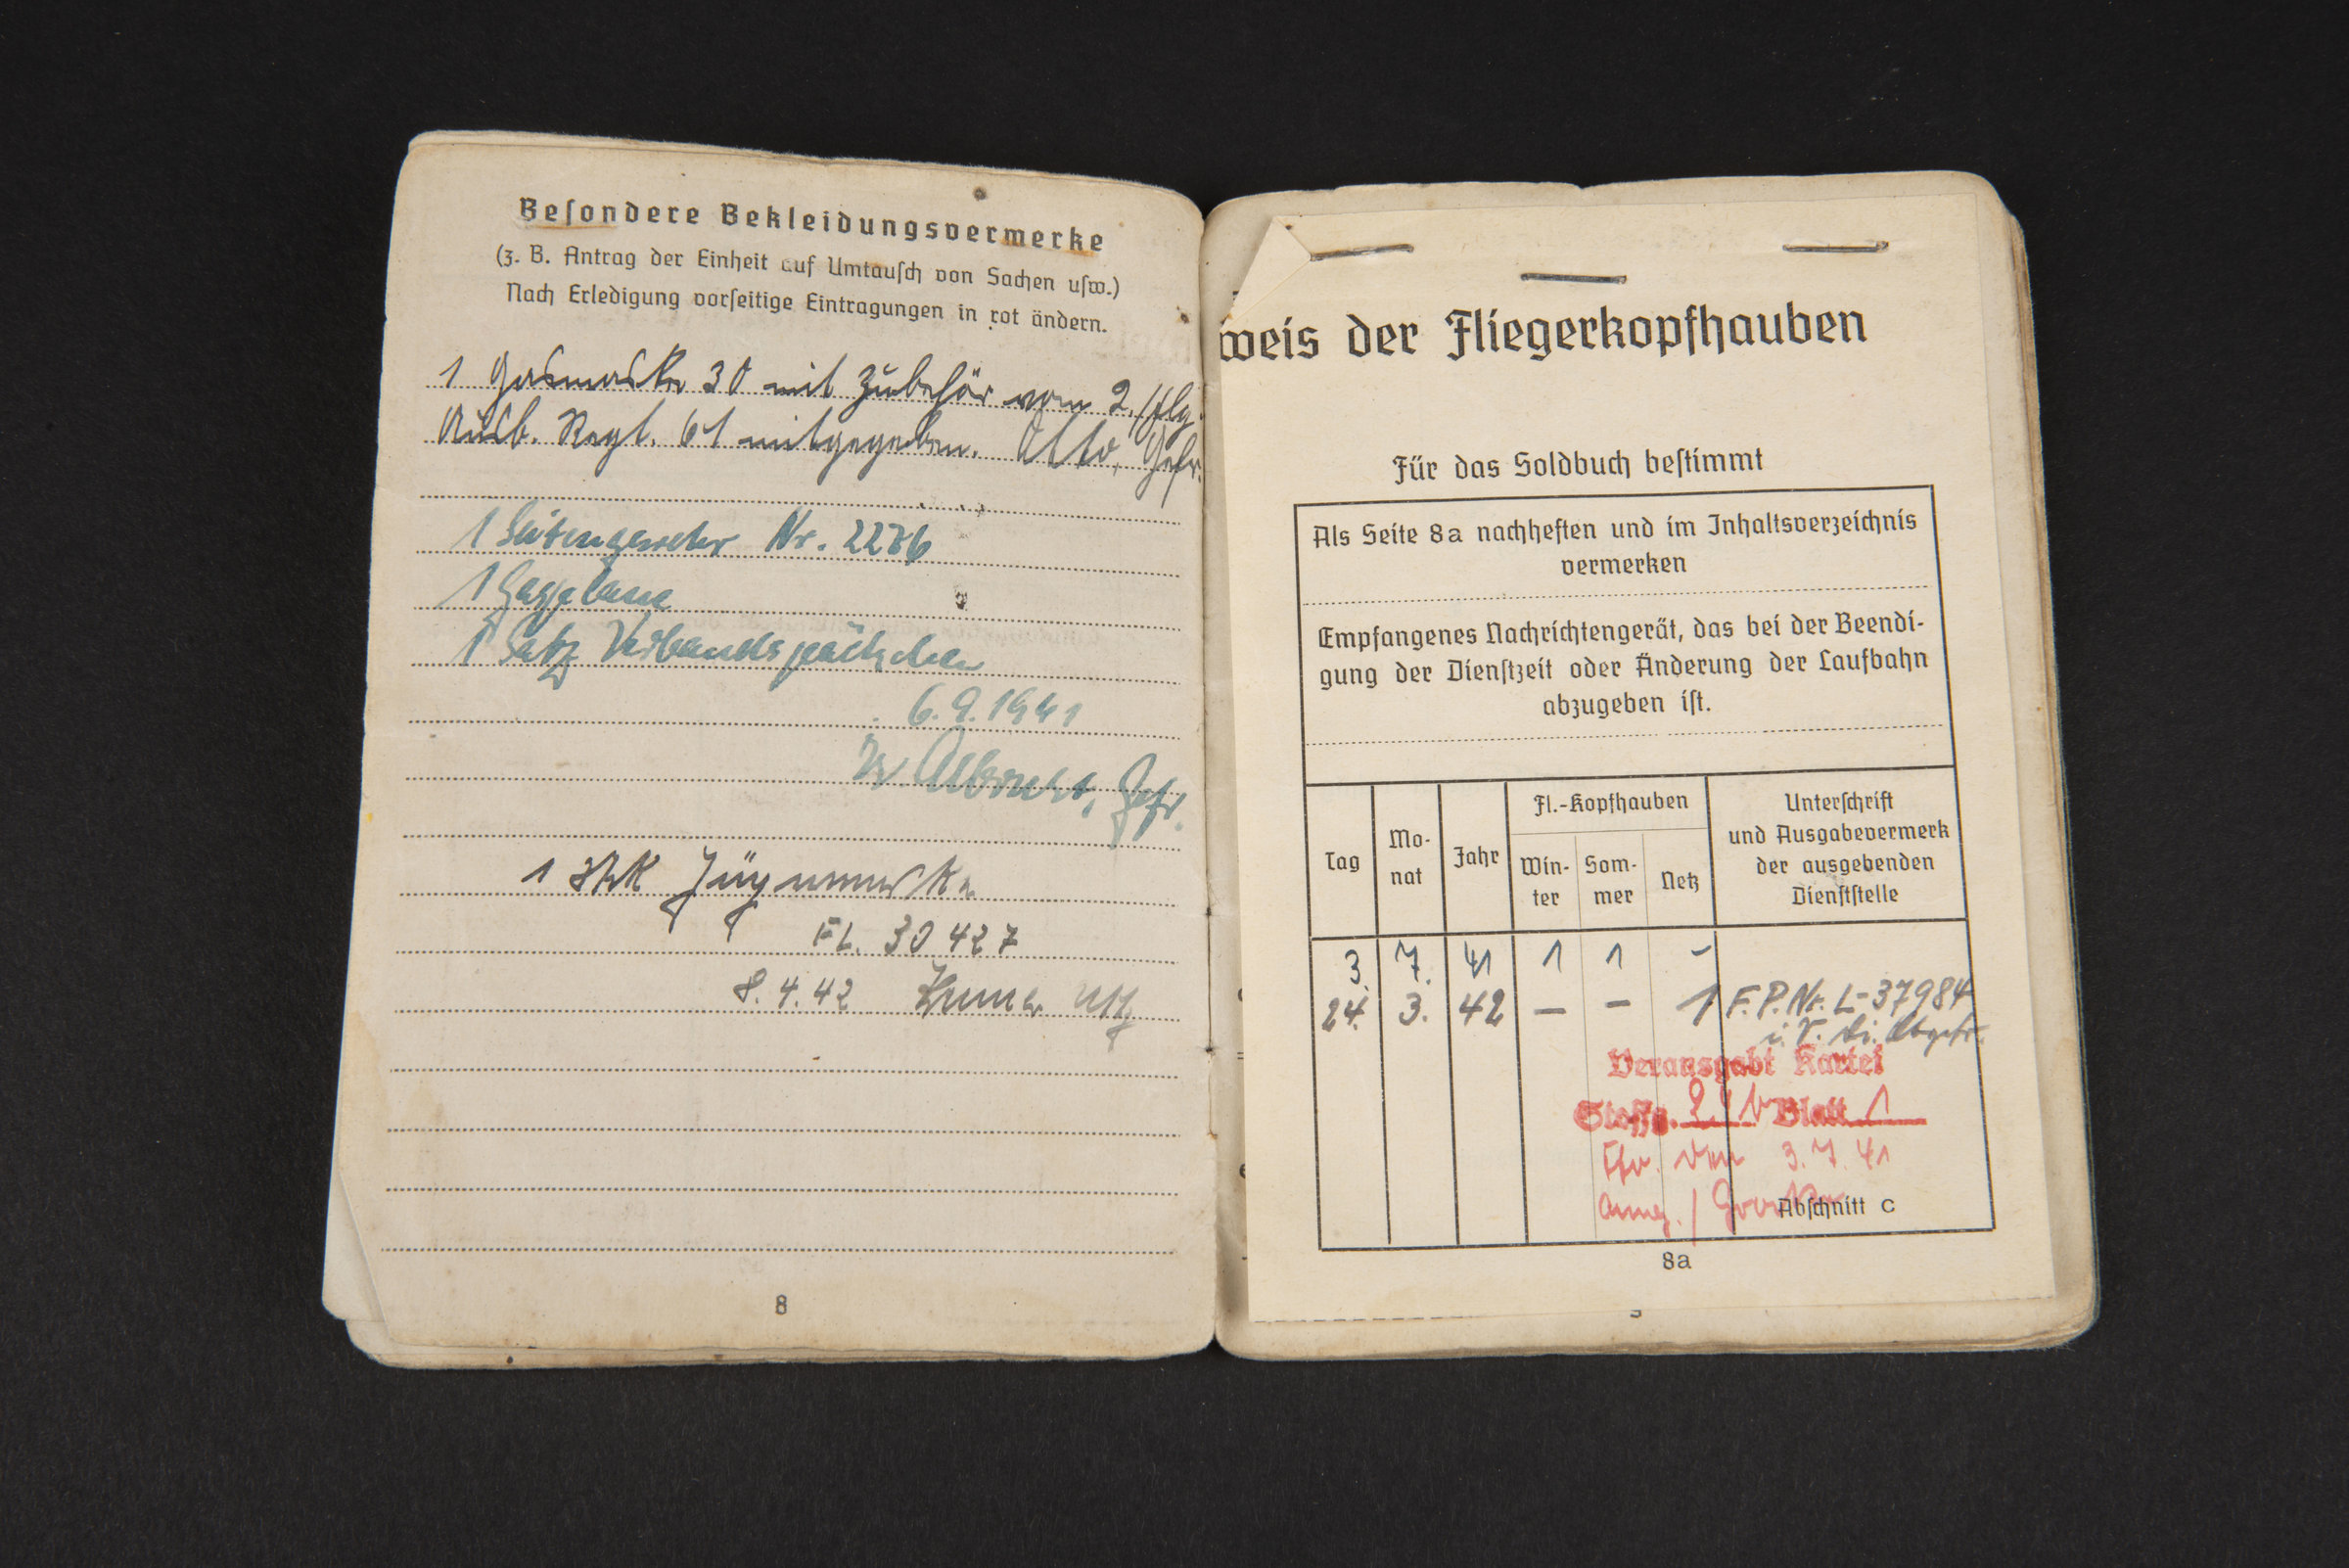 Beſondere Bekleidungsvermerke
(z. B. Antrag der Einheit auf Umtauſch von Sachen uſw.)
Nach Erledigung vorſeitige Eintragungen in rot ändern.
1 Gasmaske 30 mit Zubehör vom 2./Flg.
Ausb. Regt. 61 mitgegeben. Otto, Gefr.
1 Seitengewehr Nr. 2276
1 Gasplane
1 Satz Verbandspäckchen
6.9.1941
Albrecht, Gefr.
1 Stck
FL. 30427
8.4.42 Uffz
8
weis der Fliegerkopfhauben
Für das Soldbuch beſtimmt
Als Seite 8a nachheften und im Inhaltsverzeichnis
vermerken
Empfangenes Nachrichtengerät, das bei der Beendi-
gung der Dienſtzeit oder Änderung der Laufbahn
abzugeben iſt.
Tag Mo-nat Jahr Fl.-Kopfhauben Win-ter Som-mer Netz Unterſchrift und Ausgabevermerk der ausgebenden Dienſtſtelle
3. 7. 41 1 1 -
24. 3. 42 — — 1 F.P.Nr. L-37984
i. V. Obgefr.
Verausgabt Kartei
Blatt 1
den 3.7.41
Abſchnitt C
8a